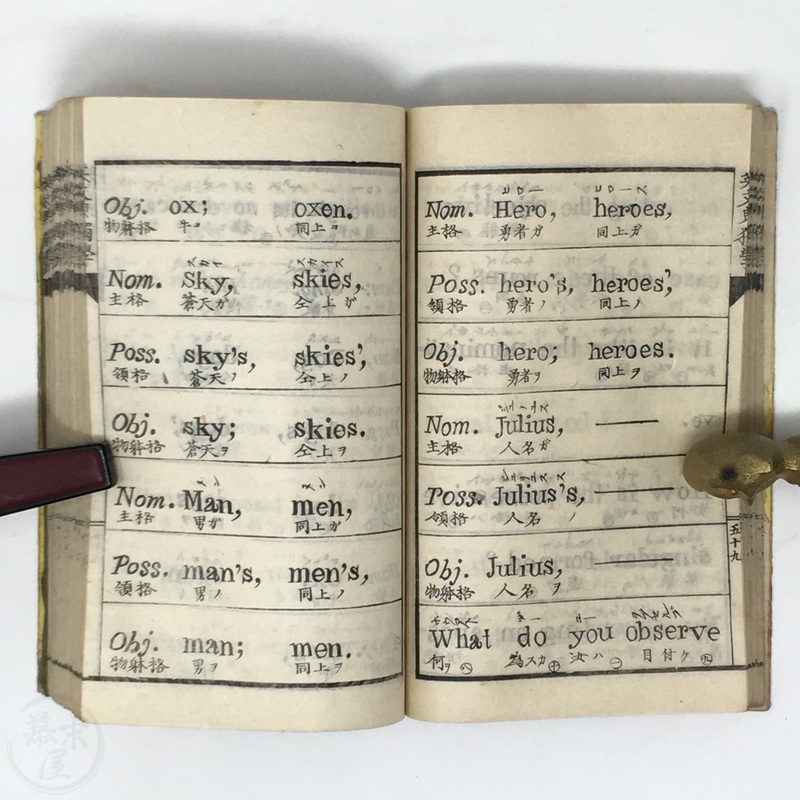 Obj. ox; oxen.
物躰格 牛ヲ 同上ヲ
スカイ スカイス
Nom. Sky, skies,
主格 蒼天ガ 仝上ガ
Poss. sky's, skies',
領格 蒼天ノ 仝上ノ
Obj. sky; skies.
物躰格 蒼天ヲ 仝上ヲ
マン メン
Nom. Man, men,
主格 男ガ 同上ガ
Poss. man's, men's,
領格 男ノ 同上ノ
Obj. man; men.
物躰格 男ヲ 同上ヲ
ヒロー ヒロース
Nom. Hero, heroes,
主格 勇者ガ 同上ガ
Poss. hero's, heroes',
領格 勇者ノ 同上ノ
Obj. hero; heroes.
物躰格 勇者ヲ 同上ヲ
Nom. Julius, ——
主格 人名ガ
Poss. Julius's, ——
領格 人名ノ
Obj. Julius, ——
物躰格 人名ヲ
What do you observe
何ヲ 為スカ 汝ハ 目付ケ
五十九
幕末屋